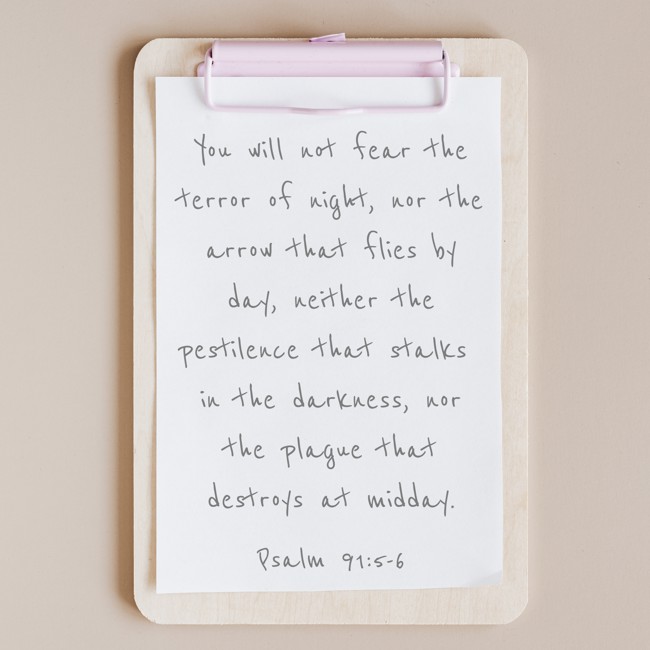 You will not fear the
terror of night, nor the
arrow that flies by
day, neither the
pestilence that stalks
in the darkness, nor
the plague that
destroys at midday.
Psalm 91:5-6